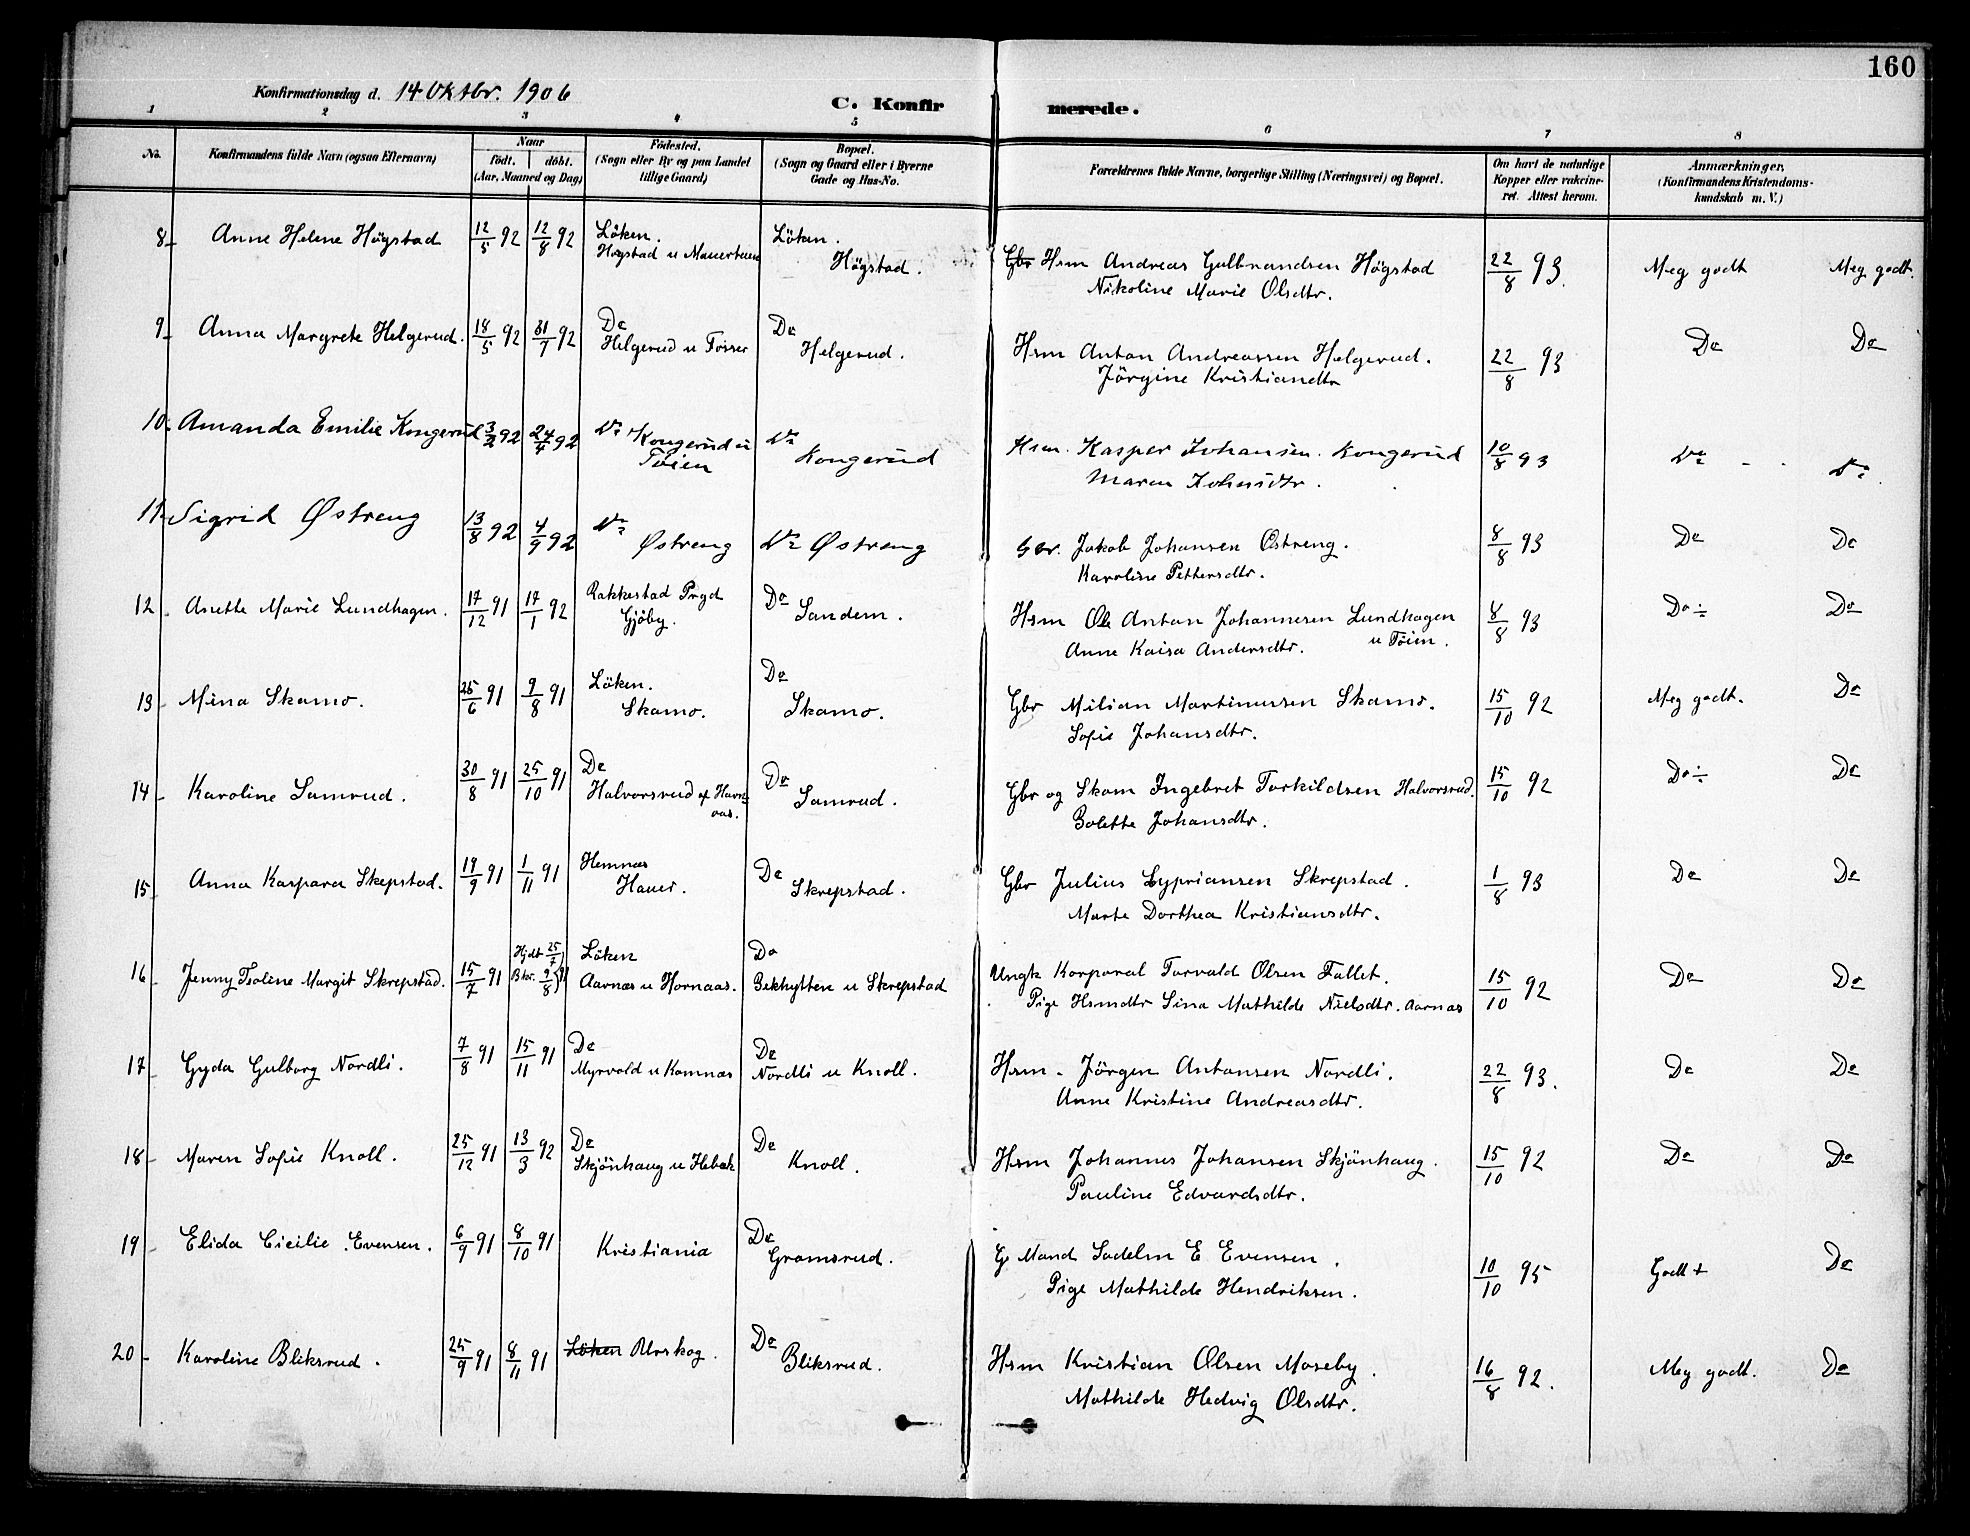 160
Konfirmationsdag d. 14 Oktbr. 1906
C. Konfirmerede.
1 2 3 4 5 6 7 8
No.
Konfirmandens fulde Navn (ogsaa Efternavn)
Naar
födt. döbt.
(Aar, Maaned og Dag)
Födested.
(Sogn eller By og paa Landet
tillige Gaard)
Bopæl.
(Sogn og Gaard eller i Byerne
Gade og Hus-No.
Forældrenes fulde Navne, borgerlige Stilling (Næringsvei) og Bopæl.
Om havt de naturlige
Kopper eller vakcine-
ret. Attest herom.
Anmærkninger,
(Konfirmandens Kristendoms-
kundskab m. V.)
8 Anne Helene Högstad 12/5 92 12/8 92 Löken. Löken.
Högstad u Högstad.
Gbr Hsm Andreas Gulbrandsen Högstad 22/8 93. Meg godt Meg godt.
Nikoline Marie Olsdtr.
9 Anna Margrete Helgerud. 18/5 92 31/7 92 Do Do
Helgerud u Tosser Helgerud.
Hsm Anton Andreassen Helgerud. 22/8 93 Do Do
Jörgine Kristiandtr
10. Amanda Emilie Kongerud 3/2 92 24/4 92 Do Kongerud u Do
Töien Kongerud
Hsm. Kasper Johansen. Kongerud 10/8 93 Do Do
Maren Johnsdtr.
11. Sigrid Østreng 13/8 92 4/9 92 Do
Østreng Do Østreng
Gbr. Jakob Johansen Östreng. 8/8 93 Do Do
Karoline Pettersdtr.
12 Anette Marie Lundhagen. 17/12 91 17/1 92 Rakkestad Prgd Do
Gjöby. Sandem.
Hsm Ole Anton Johannesen Lundhagen 8/8 93 Do ÷ Do
Anne Kaisa Andersdtr. u Töien.
13 Mina Skamo. 25/6 91 9/8 91 Löken. Do
Skamo. Skamo.
Gbr Milian Martinussen Skamo. 15/10 92 Meg godt. Do
Sofie Johansdtr.
14 Karoline Samrud. 30/8 91 25/10 91 Do Do
Halvorsrud af Havn- Samrud.
aas.
Gbr og Skom Ingebret Torkildsen Halvorsrud. 15/10 92 Do ÷ Do
Bolette Johansdtr.
15 Anna Kaspara Skepstad. 19/9 91 1/11 91 Hemnæs Do
Hauer. Skrepstad.
Gbr Julius Cypriansen Skrepstad. 1/8 93 Do Do
Marte Dorthea Kristiansdtr.
16 Jenny Isoline Margit Skrepstad. 15/7 91 Hjdt 25/7 Löken Do
Bkr. 9/8 91 Aarnæs u Hornaas. Bekhytten u Skrepstad
Ungk Korporal Torvald Olsen Fallet. 15/10 92 Do Do
Pige Hsmdtr Lina Mathilde Nielsdtr. Aarnæs
17 Gyda Gulborg Nordli. 7/8 91 15/11 91 Do Do
Myrvold u Komnæs Nordli u Knoll.
Hsm - Jörgen Antonsen Nordli. 22/8 93. Do Do
Anne Kristine Andreasdtr.
18 Maren Sofie Knoll. 25/12 91 13/3 92 Do Do
Skjönhaug u Hebæk Knoll.
Hsm Johannes Johansen Skjönhaug. 15/10 92 Do Do
Pauline Edvardsdtr.
19 Elida Cicilie Evensen. 6/9 91 8/10 91 Kristiania Do
Gromsrud.
G Mand Sadelm E Evensen. 10/10 95 Godt + Do
Pige Mathilde Hendriksen.
20 Karoline Bliksrud. 25/9 91 8/11 91 Löken Urskog. Do
Bliksrud.
Hsm Kristian Olsen Moseby. 16/8 92. Meg godt. Do
Mathilde Hedvig Olsdtr.